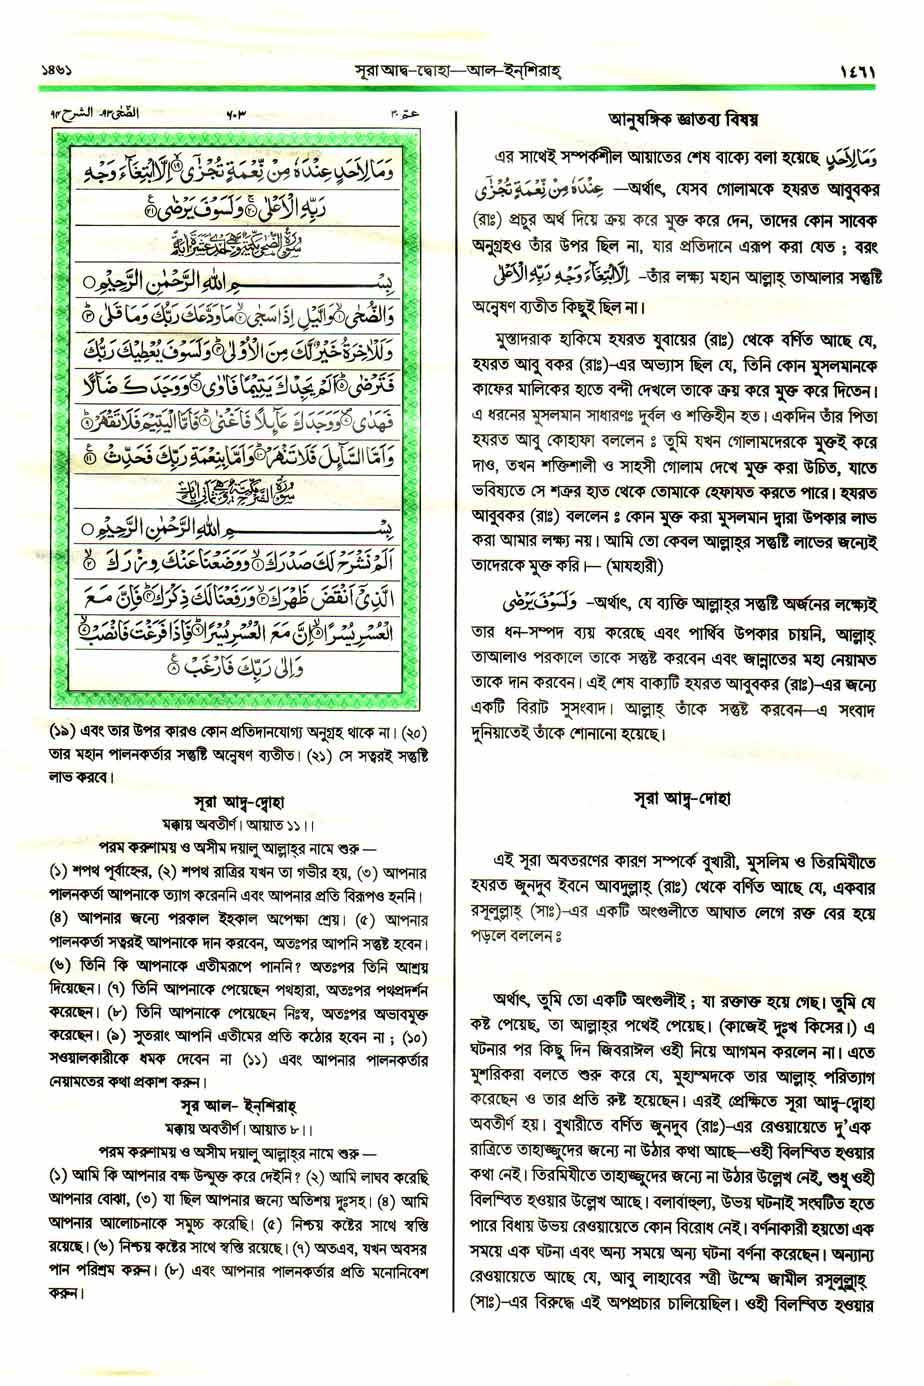 ১৪৬১
সূরা আদ্ব-দ্বোহা—আল-ইন্‌শিরাহ্
١٤٦١
الضّحى ٩٣، الشرح ٩٤
٦٠٣
عمّ ٣٠
وَمَا لِأَحَدٍ عِنْدَهٗ مِنْ نِّعْمَةٍ تُجْزٰٓى ۙ﴿١٩﴾ اِلَّا ابْتِغَآءَ وَجْهِ
رَبِّهِ الْاَعْلٰى ۚ﴿٢٠﴾ وَلَسَوْفَ يَرْضٰى ﴿٢١﴾
بِسْـــمِ اللهِ الرَّحْمٰنِ الرَّحِيْمِ ○
وَالضُّحٰى ۙ﴿١﴾ وَالَّيْلِ اِذَا سَجٰى ۙ﴿٢﴾ مَا وَدَّعَكَ رَبُّكَ وَمَا قَلٰى ﴿٣﴾
وَلَلْاٰخِرَةُ خَيْرٌ لَّكَ مِنَ الْاُوْلٰى ﴿٤﴾ وَلَسَوْفَ يُعْطِيْكَ رَبُّكَ
فَتَرْضٰى ﴿٥﴾ اَلَمْ يَجِدْكَ يَتِيْمًا فَاٰوٰى ﴿٦﴾ وَوَجَدَكَ ضَآلًّا
فَهَدٰى ﴿٧﴾ وَوَجَدَكَ عَآئِلًا فَاَغْنٰى ﴿٨﴾ فَاَمَّا الْيَتِيْمَ فَلَا تَقْهَرْ ﴿٩﴾
وَاَمَّا السَّآئِلَ فَلَا تَنْهَرْ ﴿١٠﴾ وَاَمَّا بِنِعْمَةِ رَبِّكَ فَحَدِّثْ ﴿١١﴾
بِسْـــمِ اللهِ الرَّحْمٰنِ الرَّحِيْمِ ○
اَلَمْ نَشْرَحْ لَكَ صَدْرَكَ ۙ﴿١﴾ وَوَضَعْنَا عَنْكَ وِزْرَكَ ۙ﴿٢﴾
الَّذِيْٓ اَنْقَضَ ظَهْرَكَ ۙ﴿٣﴾ وَرَفَعْنَا لَكَ ذِكْرَكَ ﴿٤﴾ فَاِنَّ مَعَ
الْعُسْرِ يُسْرًا ۙ﴿٥﴾ اِنَّ مَعَ الْعُسْرِ يُسْرًا ﴿٦﴾ فَاِذَا فَرَغْتَ فَانْصَبْ ۙ﴿٧﴾
وَاِلٰى رَبِّكَ فَارْغَبْ ﴿٨﴾
(১৯) এবং তার উপর কারও কোন প্রতিদানযোগ্য অনুগ্রহ থাকে না। (২০)
তার মহান পালনকর্তার সন্তুষ্টি অন্বেষণ ব্যতীত। (২১) সে সত্বরই সন্তুষ্টি
লাভ করবে।
সূরা আদ্ব-দ্বোহা
মক্কায় অবতীর্ণ। আয়াত ১১।।
পরম করুণাময় ও অসীম দয়ালু আল্লাহ্‌র নামে শুরু —
(১) শপথ পূর্বাহ্নের, (২) শপথ রাত্রির যখন তা গভীর হয়, (৩) আপনার
পালনকর্তা আপনাকে ত্যাগ করেননি এবং আপনার প্রতি বিরূপও হননি।
(৪) আপনার জন্যে পরকাল ইহকাল অপেক্ষা শ্রেয়। (৫) আপনার
পালনকর্তা সত্বরই আপনাকে দান করবেন, অতঃপর আপনি সন্তুষ্ট হবেন।
(৬) তিনি কি আপনাকে এতীমরূপে পাননি? অতঃপর তিনি আশ্রয়
দিয়েছেন। (৭) তিনি আপনাকে পেয়েছেন পথহারা, অতঃপর পথপ্রদর্শন
করেছেন। (৮) তিনি আপনাকে পেয়েছেন নিঃস্ব, অতঃপর অভাবমুক্ত
করেছেন। (৯) সুতরাং আপনি এতীমের প্রতি কঠোর হবেন না ; (১০)
সওয়ালকারীকে ধমক দেবেন না (১১) এবং আপনার পালনকর্তার
নেয়ামতের কথা প্রকাশ করুন।
সূর আল- ইন্‌শিরাহ্
মক্কায় অবতীর্ণ। আয়াত ৮।।
পরম করুণাময় ও অসীম দয়ালু আল্লাহ্‌র নামে শুরু —
(১) আমি কি আপনার বক্ষ উন্মুক্ত করে দেইনি? (২) আমি লাঘব করেছি
আপনার বোঝা, (৩) যা ছিল আপনার জন্যে অতিশয় দুঃসহ। (৪) আমি
আপনার আলোচনাকে সমুচ্চ করেছি। (৫) নিশ্চয় কষ্টের সাথে স্বস্তি
রয়েছে। (৬) নিশ্চয় কষ্টের সাথে স্বস্তি রয়েছে। (৭) অতএব, যখন অবসর
পান পরিশ্রম করুন। (৮) এবং আপনার পালনকর্তার প্রতি মনোনিবেশ
করুন।
আনুষঙ্গিক জ্ঞাতব্য বিষয়
এর সাথেই সম্পর্কশীল আয়াতের শেষ বাক্যে বলা হয়েছে وَمَا لِأَحَدٍ
عِنْدَهٗ مِنْ نِّعْمَةٍ تُجْزٰٓى —অর্থাৎ, যেসব গোলামকে হযরত আবুবকর
(রাঃ) প্রচুর অর্থ দিয়ে ক্রয় করে মুক্ত করে দেন, তাদের কোন সাবেক
অনুগ্রহও তাঁর উপর ছিল না, যার প্রতিদানে এরূপ করা যেত ; বরং
اِلَّا ابْتِغَآءَ وَجْهِ رَبِّهِ الْاَعْلٰى -তাঁর লক্ষ্য মহান আল্লাহ্ তাআলার সন্তুষ্টি
অন্বেষণ ব্যতীত কিছুই ছিল না।
মুস্তাদরাক হাকিমে হযরত যুবায়ের (রাঃ) থেকে বর্ণিত আছে যে,
হযরত আবু বকর (রাঃ)-এর অভ্যাস ছিল যে, তিনি কোন মুসলমানকে
কাফের মালিকের হাতে বন্দী দেখলে তাকে ক্রয় করে মুক্ত করে দিতেন।
এ ধরনের মুসলমান সাধারণঃ দুর্বল ও শক্তিহীন হত। একদিন তাঁর পিতা
হযরত আবু কোহাফা বললেন ঃ তুমি যখন গোলামদেরকে মুক্তই করে
দাও, তখন শক্তিশালী ও সাহসী গোলাম দেখে মুক্ত করা উচিত, যাতে
ভবিষ্যতে সে শত্রুর হাত থেকে তোমাকে হেফাযত করতে পারে। হযরত
আবুবকর (রাঃ) বললেন ঃ কোন মুক্ত করা মুসলমান দ্বারা উপকার লাভ
করা আমার লক্ষ্য নয়। আমি তো কেবল আল্লাহ্‌র সন্তুষ্টি লাভের জন্যেই
তাদেরকে মুক্ত করি।— (মাযহারী)
وَلَسَوْفَ يَرْضٰى -অর্থাৎ, যে ব্যক্তি আল্লাহ্‌র সন্তুষ্টি অর্জনের লক্ষ্যেই
তার ধন-সম্পদ ব্যয় করেছে এবং পার্থিব উপকার চায়নি, আল্লাহ্
তাআলাও পরকালে তাকে সন্তুষ্ট করবেন এবং জান্নাতের মহা নেয়ামত
তাকে দান করবেন। এই শেষ বাক্যটি হযরত আবুবকর (রাঃ)-এর জন্যে
একটি বিরাট সুসংবাদ। আল্লাহ্ তাঁকে সন্তুষ্ট করবেন—এ সংবাদ
দুনিয়াতেই তাঁকে শোনানো হয়েছে।
সূরা আদ্ব-দোহা
এই সূরা অবতরণের কারণ সম্পর্কে বুখারী, মুসলিম ও তিরমিযীতে
হযরত জুনদুব ইবনে আবদুল্লাহ্ (রাঃ) থেকে বর্ণিত আছে যে, একবার
রসূলুল্লাহ্ (সাঃ)-এর একটি অংগুলীতে আঘাত লেগে রক্ত বের হয়ে
পড়লে বললেন ঃ
অর্থাৎ, তুমি তো একটি অংগুলীই ; যা রক্তাক্ত হয়ে গেছ। তুমি যে
কষ্ট পেয়েছ, তা আল্লাহ্‌র পথেই পেয়েছ। (কাজেই দুঃখ কিসের।) এ
ঘটনার পর কিছু দিন জিবরাঈল ওহী নিয়ে আগমন করলেন না। এতে
মুশরিকরা বলতে শুরু করে যে, মুহাম্মদকে তার আল্লাহ্ পরিত্যাগ
করেছেন ও তার প্রতি রুষ্ট হয়েছেন। এরই প্রেক্ষিতে সূরা আদ্ব-দ্বোহা
অবতীর্ণ হয়। বুখারীতে বর্ণিত জুনদুব (রাঃ)-এর রেওয়ায়েতে দু’এক
রাত্রিতে তাহাজ্জুদের জন্যে না উঠার কথা আছে—ওহী বিলম্বিত হওয়ার
কথা নেই। তিরমিযীতে তাহাজ্জুদের জন্যে না উঠার উল্লেখ নেই, শুধু ওহী
বিলম্বিত হওয়ার উল্লেখ আছে। বলাবাহুল্য, উভয় ঘটনাই সংঘটিত হতে
পারে বিধায় উভয় রেওয়ায়েতে কোন বিরোধ নেই। বর্ণনাকারী হয়তো এক
সময়ে এক ঘটনা এবং অন্য সময়ে অন্য ঘটনা বর্ণনা করেছেন। অন্যান্য
রেওয়ায়েতে আছে যে, আবু লাহাবের স্ত্রী উম্মে জামীল রসূলুল্লাহ্
(সাঃ)-এর বিরুদ্ধে এই অপপ্রচার চালিয়েছিল। ওহী বিলম্বিত হওয়ার